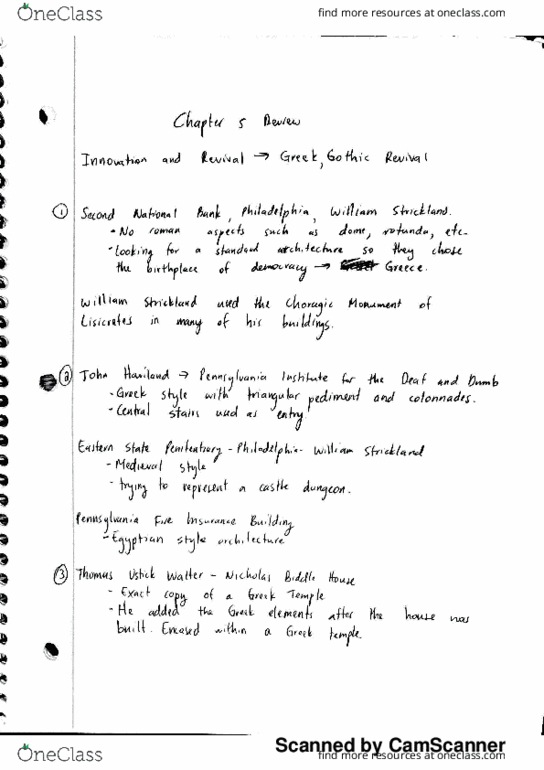 OneClass
find more resources at oneclass.com
Chapter 5 Review
Innovation and Revival → Greek, Gothic Revival
① Second National Bank, Philadelphia, William Strickland.
• No roman aspects such as dome, rotunda, etc.
• Looking for a standard architecture so they chose
the birthplace of democracy → Greece.
William Strickland used the Choragic Monument of
Lisicrates in many of his buildings.
② John Haviland → Pennsylvania Institute for the Deaf and Dumb
- Greek style with triangular pediment and colonnades.
- Central stairs used as entry
Eastern State Penitentiary - Philadelphia - William Strickland
- Medieval style
- trying to represent a castle dungeon.
Pennsylvania Fire Insurance Building
- Egyptian style architecture
③ Thomas Ustick Walter - Nicholas Biddle House
- Exact copy of a Greek Temple
- He added the Greek elements after the house was
built. Encased within a Greek temple.
Scanned by CamScanner
OneClass
find more resources at oneclass.com